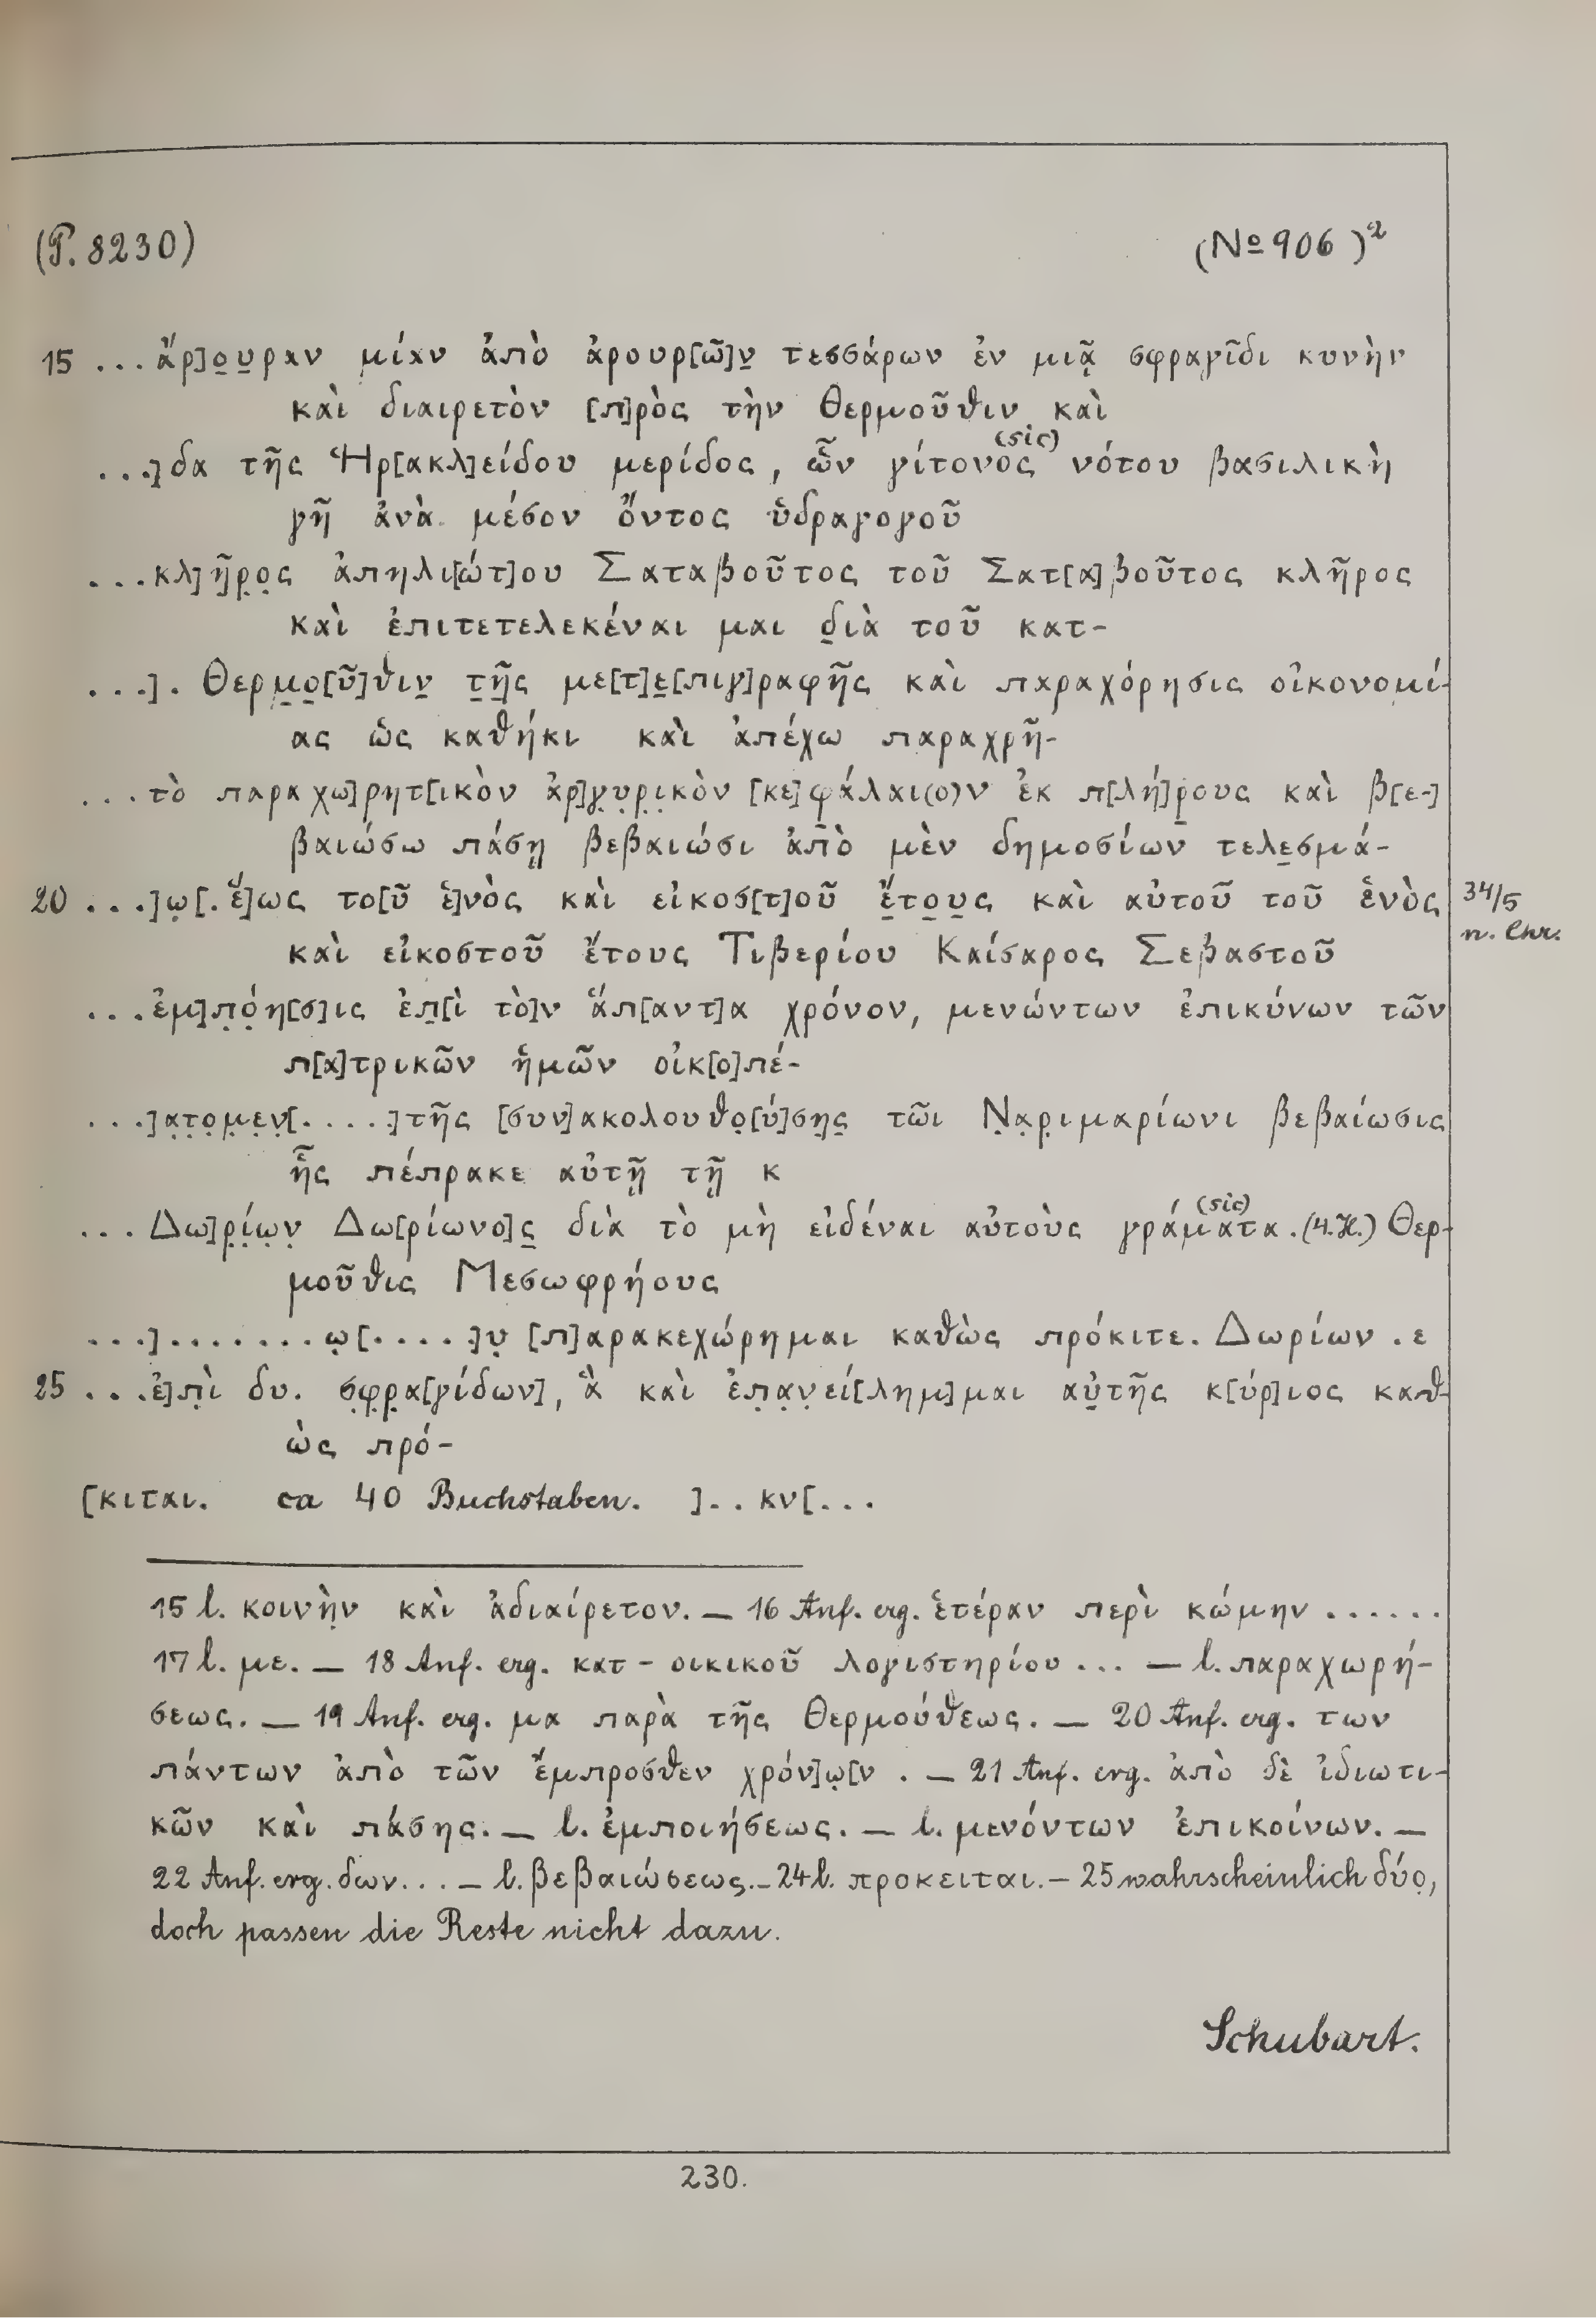 (P. 8230) (No 906)²
15 ...ἄρ]ο̣υ̣ραν μίαν ἀπὸ ἀρουρ[ῶ]ν̣ τεσσάρων ἐν μιᾷ σφραγῖδι κυνὴν
καὶ διαιρετὸν [π]ρὸς τὴν Θερμοῦθιν καὶ
...]δα τῆς Ἡρ[ακλ]είδου μερίδος, ὧν γίτονος (sic) νότου βασιλικὴ
γῆ ἀνὰ μέσον ὄντος ὑδραγογοῦ
...κλ]ῆ̣ρ̣ο̣ς ἀπηλι[ώτ]ου Σαταβοῦτος τοῦ Σατ[α]βοῦτος κλῆρος
καὶ ἐπιτετελεκέναι μαι δ̣ιὰ τοῦ κατ-
...]. Θερμ̣ο̣[ῦ]θιν̣ τ̣ῆ̣ς με[τ]ε̣[πιγ]ραφῆς καὶ παραχόρησις οἰκονομί-
ας ὡς καθήκι καὶ ἀπέχω παραχρῆ-
...τὸ παραχω]ρητ[ικὸν ἀρ]γ̣υ̣ρ̣ι̣κὸν [κε]φ̣άλαι(ο)ν ἐκ π[λή]ρ̣ους καὶ β[ε-]
βαιώσω πάσῃ βεβαιώσι ἀπὸ μὲν δημοσίων τελε̣σμά-
20 ...]ω̣[. ἕ]ως το[ῦ ἑ]νὸς καὶ εἰκοσ[τ]οῦ ἔ̣το̣υ̣ς καὶ αὐτοῦ τοῦ ἑνὸς 34/5
n. Chr.
καὶ εἰκοστοῦ ἔτους Τιβερίου Καίσαρος Σεβαστοῦ
...ἐμ]π̣ό̣η[σ]ις ἐπ̣[ὶ τὸ]ν ἅπ[αντ]α χρόνον, μενώντων ἐπικύνων τῶν
π[α]τρικῶν ἡμῶν οἰκ[ο]πέ-
...]α̣τ̣ο̣μ̣ε̣ν̣[.....]τῆς [συν]ακολουθο̣[ύ]ση̣ς̣ τῶι Ν̣α̣ρ̣ιμαρίωνι βεβαίωσις
ἧς πέπρακε αὐτῇ τῇ κ
... Δω]ρ̣ί̣ω̣ν̣ Δω[ρίωνο]ς̣ διὰ τὸ μὴ εἰδέναι αὐτοὺς γράματα (sic). (4. H.) Θερ-
μοῦθις Μεσωφρήους
...].......ω̣[....]υ̣ [π]αρακεχώρημαι καθὼς πρόκιτε. Δωρίων .ε
25 ...ἐ]π̣ὶ δυ. σ̣φ̣ρ̣α[γίδων], ἃ καὶ ἐπ̣α̣ν̣εί[λημ]μαι αὐ̣τῆς κ[ύρ]ιος καθ-
ὼς πρό-
[κιται. ca 40 Buchstaben. ]..κν[...
15 l. κοινὴν καὶ ἀδιαίρετον. — 16 Anf. erg. ἑτέραν περὶ κώμην ......
17 l. με. — 18 Anf. erg. κατ-οικικοῦ λογιστηρίου ... — l. παραχωρή-
σεως. — 19 Anf. erg. μα παρὰ τῆς Θερμούθεως. — 20 Anf. erg. των
πάντων ἀπὸ τῶν ἔμπροσθεν χρόν]ω̣[ν . — 21 Anf. erg. ἀπὸ δὲ ἰδιωτι-
κῶν καὶ πάσης. — l. ἐμποιήσεως. — l. μενόντων ἐπικοίνων. —
22 Anf. erg. δων... — l. βεβαιώσεως. — 24 l. προκειται. — 25 wahrscheinlich δύο̣,
doch passen die Reste nicht dazu.
Schubart.
230.